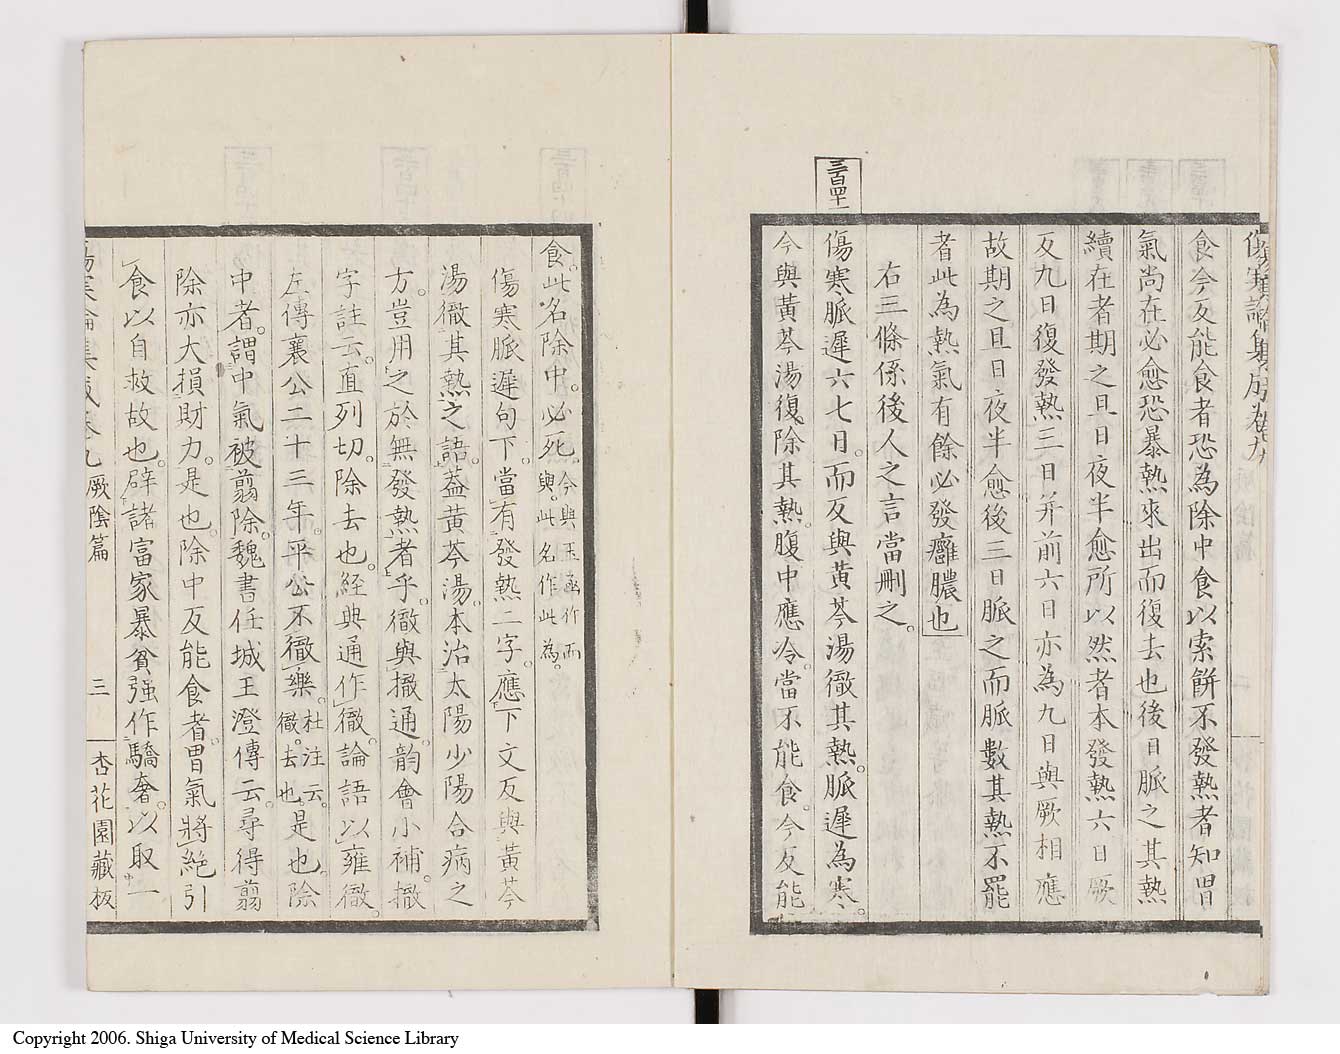 傷寒論集成卷九
食今反能食者恐為除中食以索餅不發熱者知胃
氣尚在必愈恐暴熱來出而復去也後日脈之其熱
續在者期之旦日夜半愈所以然者本發熱六日厥
反九日復發熱三日并前六日亦為九日與厥相應
故期之旦日夜半愈後三日脈之而脈數其熱不罷
者此為熱氣有餘必發癰膿也
右三條係後人之言當刪之。
三百四十一
傷寒脈遲六七日。而反與黃芩湯徹其熱。脈遲為寒。
今與黃芩湯復除其熱。腹中應冷。當不能食。今反能
食。此名除中。必死。今與玉函作而與。此名作此為。
傷寒脈遲句下。當有發熱二字。應下文反與黃芩
湯徹其熱之語。蓋黃芩湯。本治太陽少陽合病之
方。豈用之於無發熱者乎。徹與撤通。韵會小補。撤
字註云。直列切。除去也。經典通作徹。論語以雍徹。
左傳襄公二十三年。平公不徹樂。杜注云。徹。去也。是也。除
中者。謂中氣被翦除。魏書任城王澄傳云。尋得翦
除亦大損財力。是也。除中反能食者。胃氣將絕引
食以自救故也。辟諸富家暴貧強作驕奢。以取一
傷寒論集成卷九 厥陰篇 三 杏花園藏板